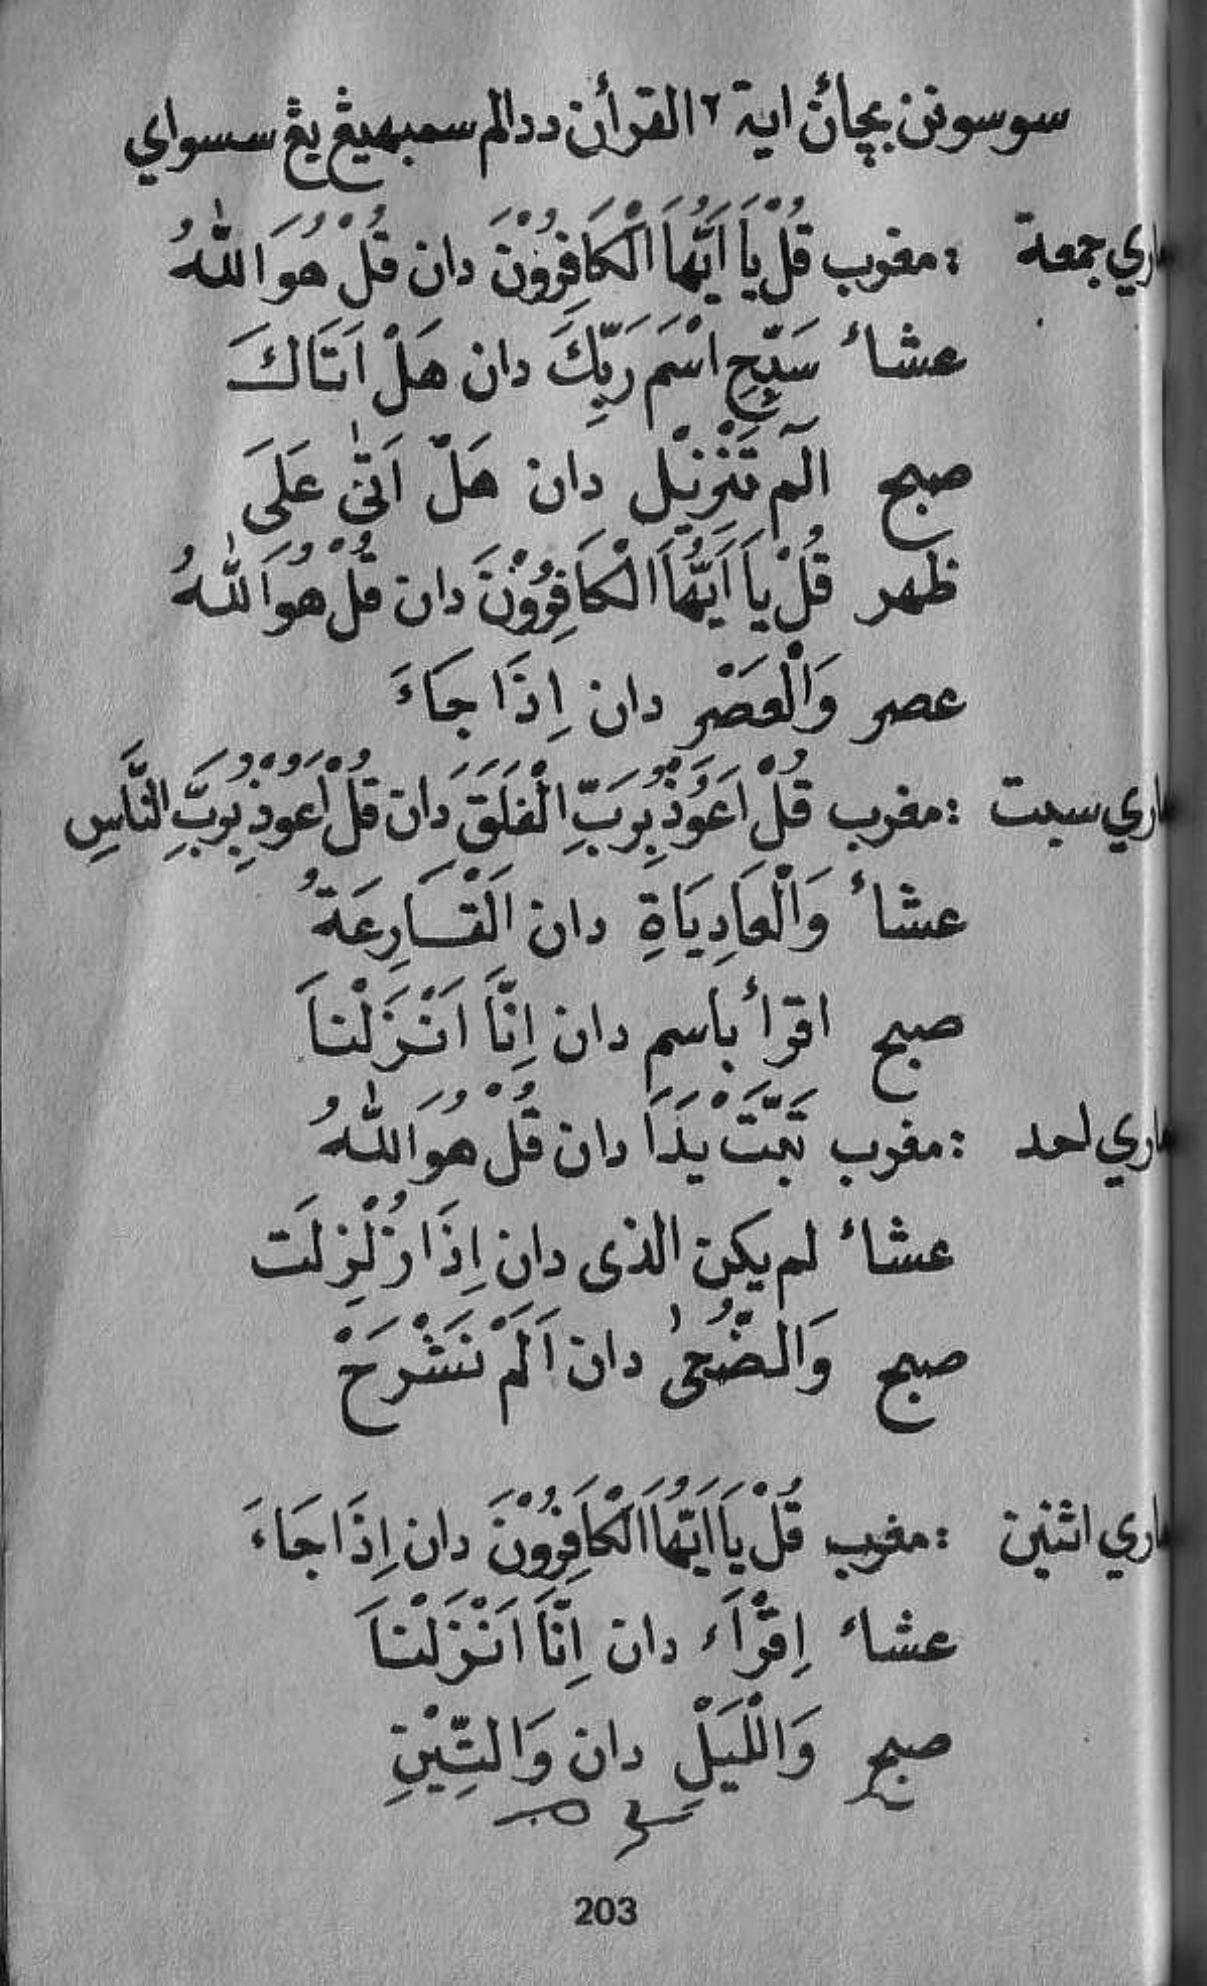 سوسونن بچاءن اية٢ القرأن ددالم سمبهيڠ يڠ سسواي
هاري جمعة : مغرب قُلْ يَا اَيُّهَا الْكَافِرُوْنَ دان قُلْ هُوَ اللّٰهُ
عشاء سَبِّحِ اسْمَ رَبِّكَ دان هَلْ اَتَاكَ
صبح الٓمٓ تَنْزِيْل دان هَلْ اَتٰى عَلَى
ظهر قُلْ يَا اَيُّهَا الْكَافِرُوْنَ دان قُلْ هُوَ اللّٰهُ
عصر وَالْعَصْرِ دان اِذَا جَاءَ
هاري سبت : مغرب قُلْ اَعُوْذُ بِرَبِّ الْفَلَقَ دان قُلْ اَعُوْذُ بِرَبِّ النَّاسِ
عشاء وَالْعَادِيَاةِ دان اَلْقَارِعَةُ
صبح اقرأ باسم دان اِنَّا اَنْزَلْنَا
هاري احد : مغرب تَبَّتْ يَدَا دان قُلْ هُوَ اللّٰهُ
عشاء لم يكن الذى دان اِذَا زُلْزِلَت
صبح وَالضُّحٰى دان اَلَمْ نَشْرَحْ
هاري اثنين : مغرب قُلْ يَا اَيُّهَا الْكَافِرُوْنَ دان اِذَا جَاءَ
عشاء اِقْرَاَء دان اِنَّا اَنْزَلْنَا
صبح وَاللَّيْلِ دان وَالتِّيْنِ
203